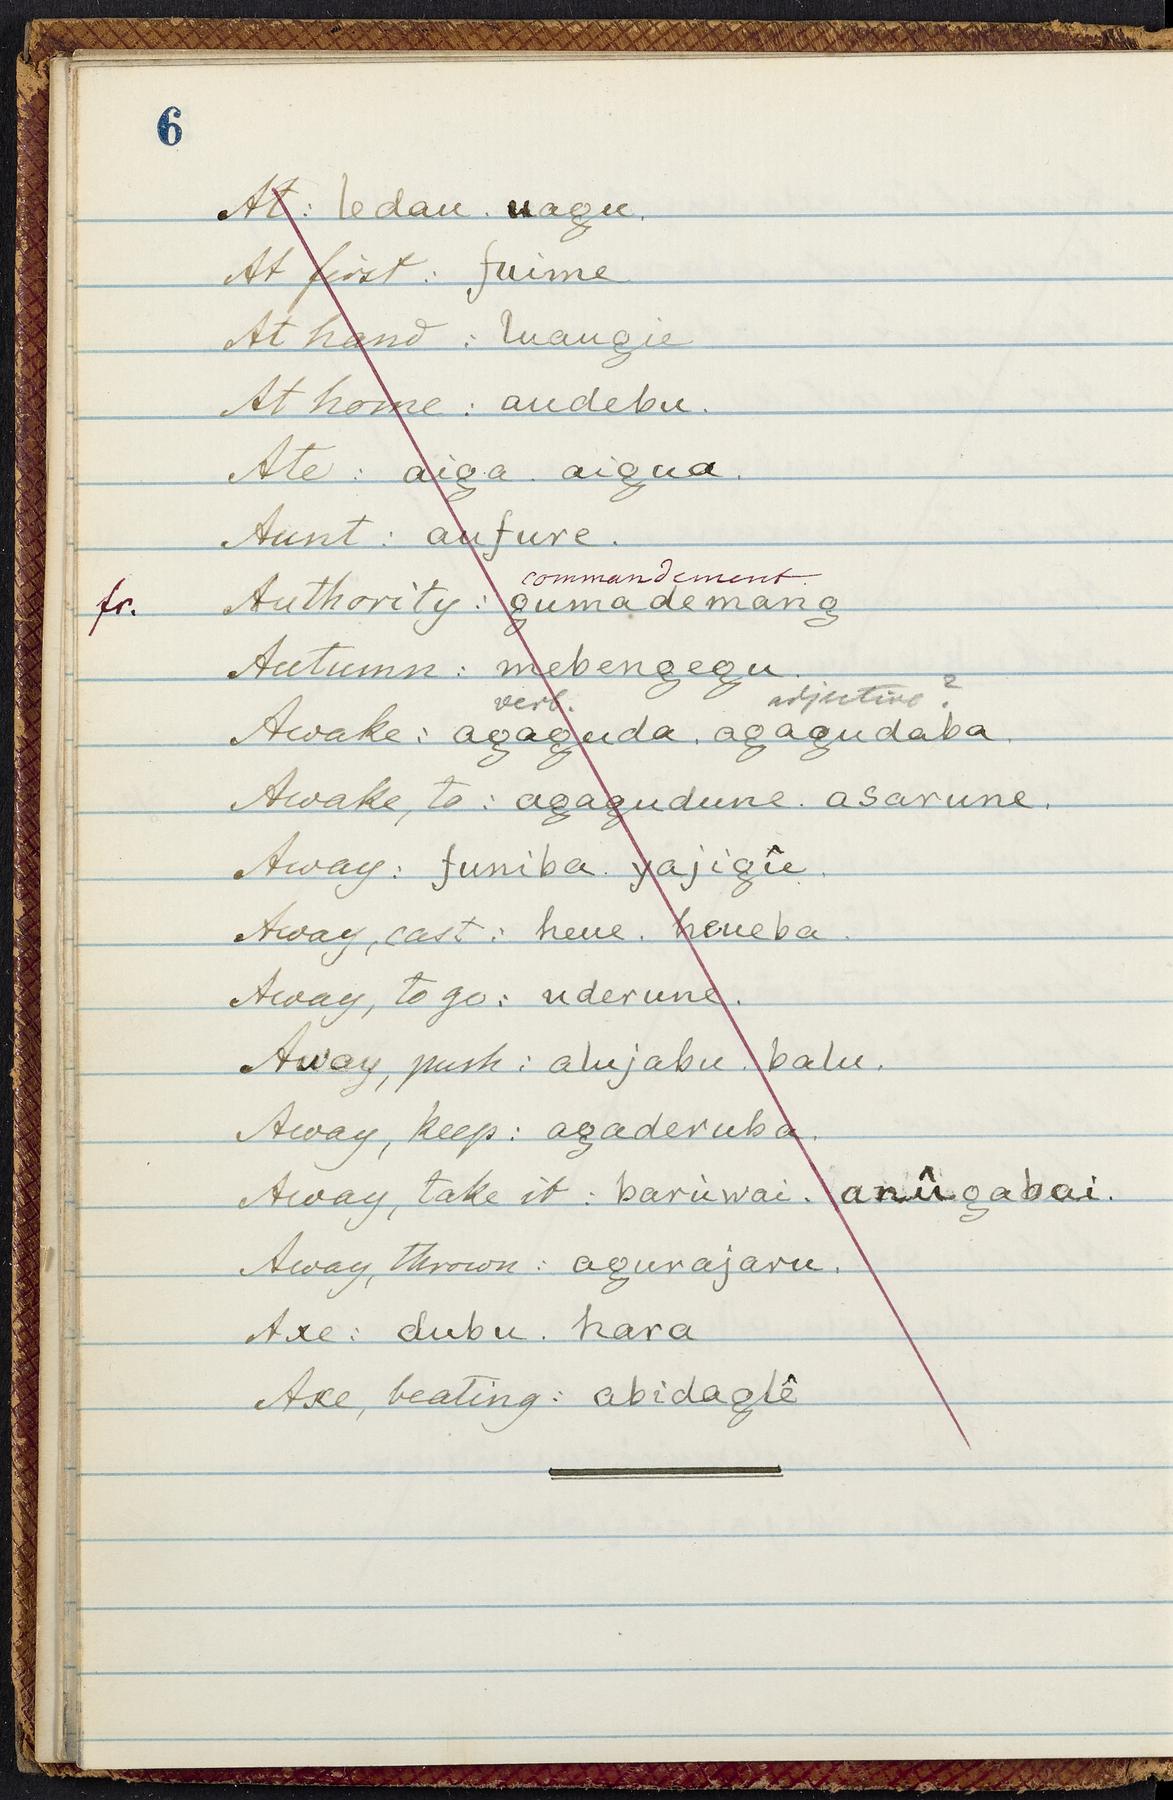 6
At: ledau. uagu.
At first: fuime
At hand: luaugie
At home: audebu.
Ate: aiga. aigua.
Aunt: aufure.
commandement.
fr. Authority: gumademang
Autumn: mebengegu.
verb. adjective?
Awake: agaguda. agagudaba.
Awake, to: agagudune. asarune.
Away: funiba. yajigîe.
Away, cast: heue. heueba.
Away, to go: uderune.
Away, push: alujabu. balu.
Away, keep: agaderuba.
Away, take it: barùwai. anûgabai.
Away, thrown: agurajaru.
Axe: dubu. hara
Axe, beating: abidaglê